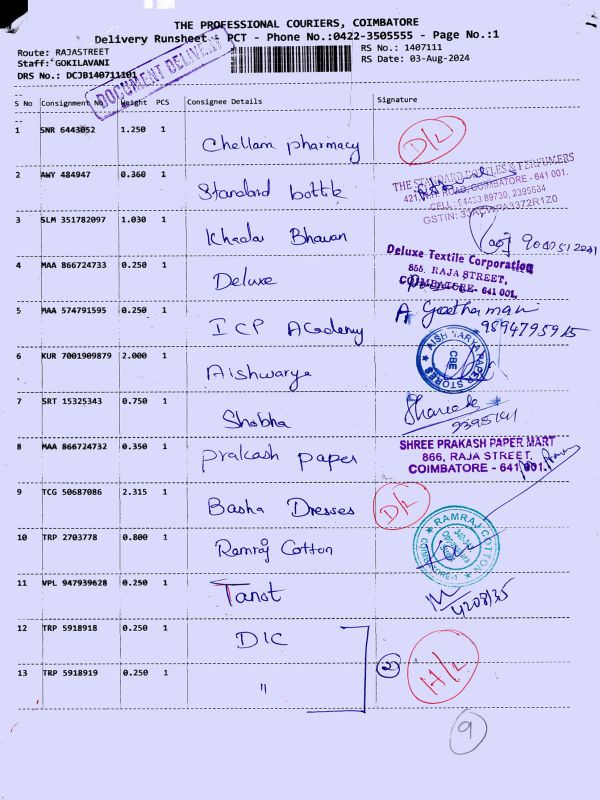 THE PROFESSIONAL COURIERS, COIMBATORE
Delivery Runsheet PCT - Phone No.:0422-3505555 - Page No.:1
Route: RAJASTREET
RS No.: 1407111
Staff: GOKILAVANI
RS Date: 03-Aug-2024
DRS No.: DCJB140711101
DOCUMENT DELIVERY
S No Consignment No Weight PCS Consignee Details Signature
1 SNR 6443052 1.250 1 Chellam pharmacy D/L
2 AWY 484947 0.360 1 Standard bottle
THE STANDARD BOTTLES & PERFUMERS
ROAD, COIMBATORE - 641 001.
CELL : 94433 89730, 2395684
3 SLM 351782097 1.030 1 Khadai Bhavan
4 MAA 866724733 0.250 1 Deluxe
Deluxe Textile Corporation
855, RAJA STREET,
COIMBATORE - 641 001.
5 MAA 574791595 0.250 1 ICP Academy
9894795915
6 KUR 7001909879 2.000 1 Aishwarya
AISHWARYA PAPER STORES
CBE
7 SRT 15325343 0.750 1 Shobha
8 MAA 866724732 0.350 1 prakash paper
SHREE PRAKASH PAPER MART
866, RAJA STREET,
COIMBATORE - 641 001.
9 TCG 50687086 2.315 1 Basha Dresses D/L
10 TRP 2703778 0.800 1 Ramraj Cotton
RAMRAJ COTTON
COIMBATORE-1
11 VPL 947939628 0.250 1 Tanot
4208135
12 TRP 5918918 0.250 1 DIC
2 H/L
13 TRP 5918919 0.250 1 "
9